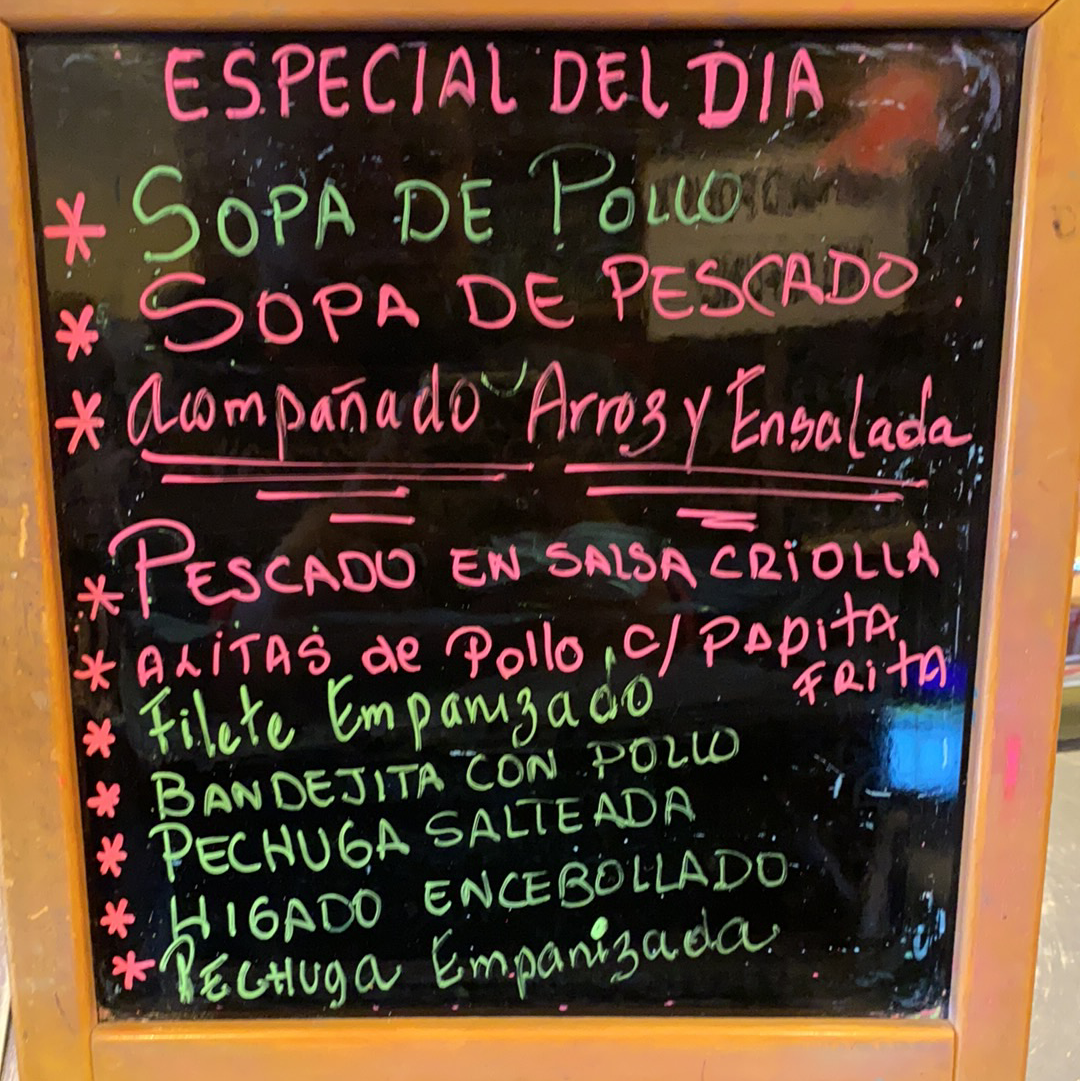 ESPECIAL DEL DIA
* SOPA DE POLLO
* SOPA DE PESCADO.
* Acompañado Arroz y Ensalada
* PESCADO EN SALSA CRiOLLA
* ALiTAS de Pollo c/ PAPitA
FRitA
* Filete Empanizado
* BANDEJITA CON POLLO
* PECHUGA SALTEADA
* HIGADO ENCEBOLLADO
* PECHuga Empanizada